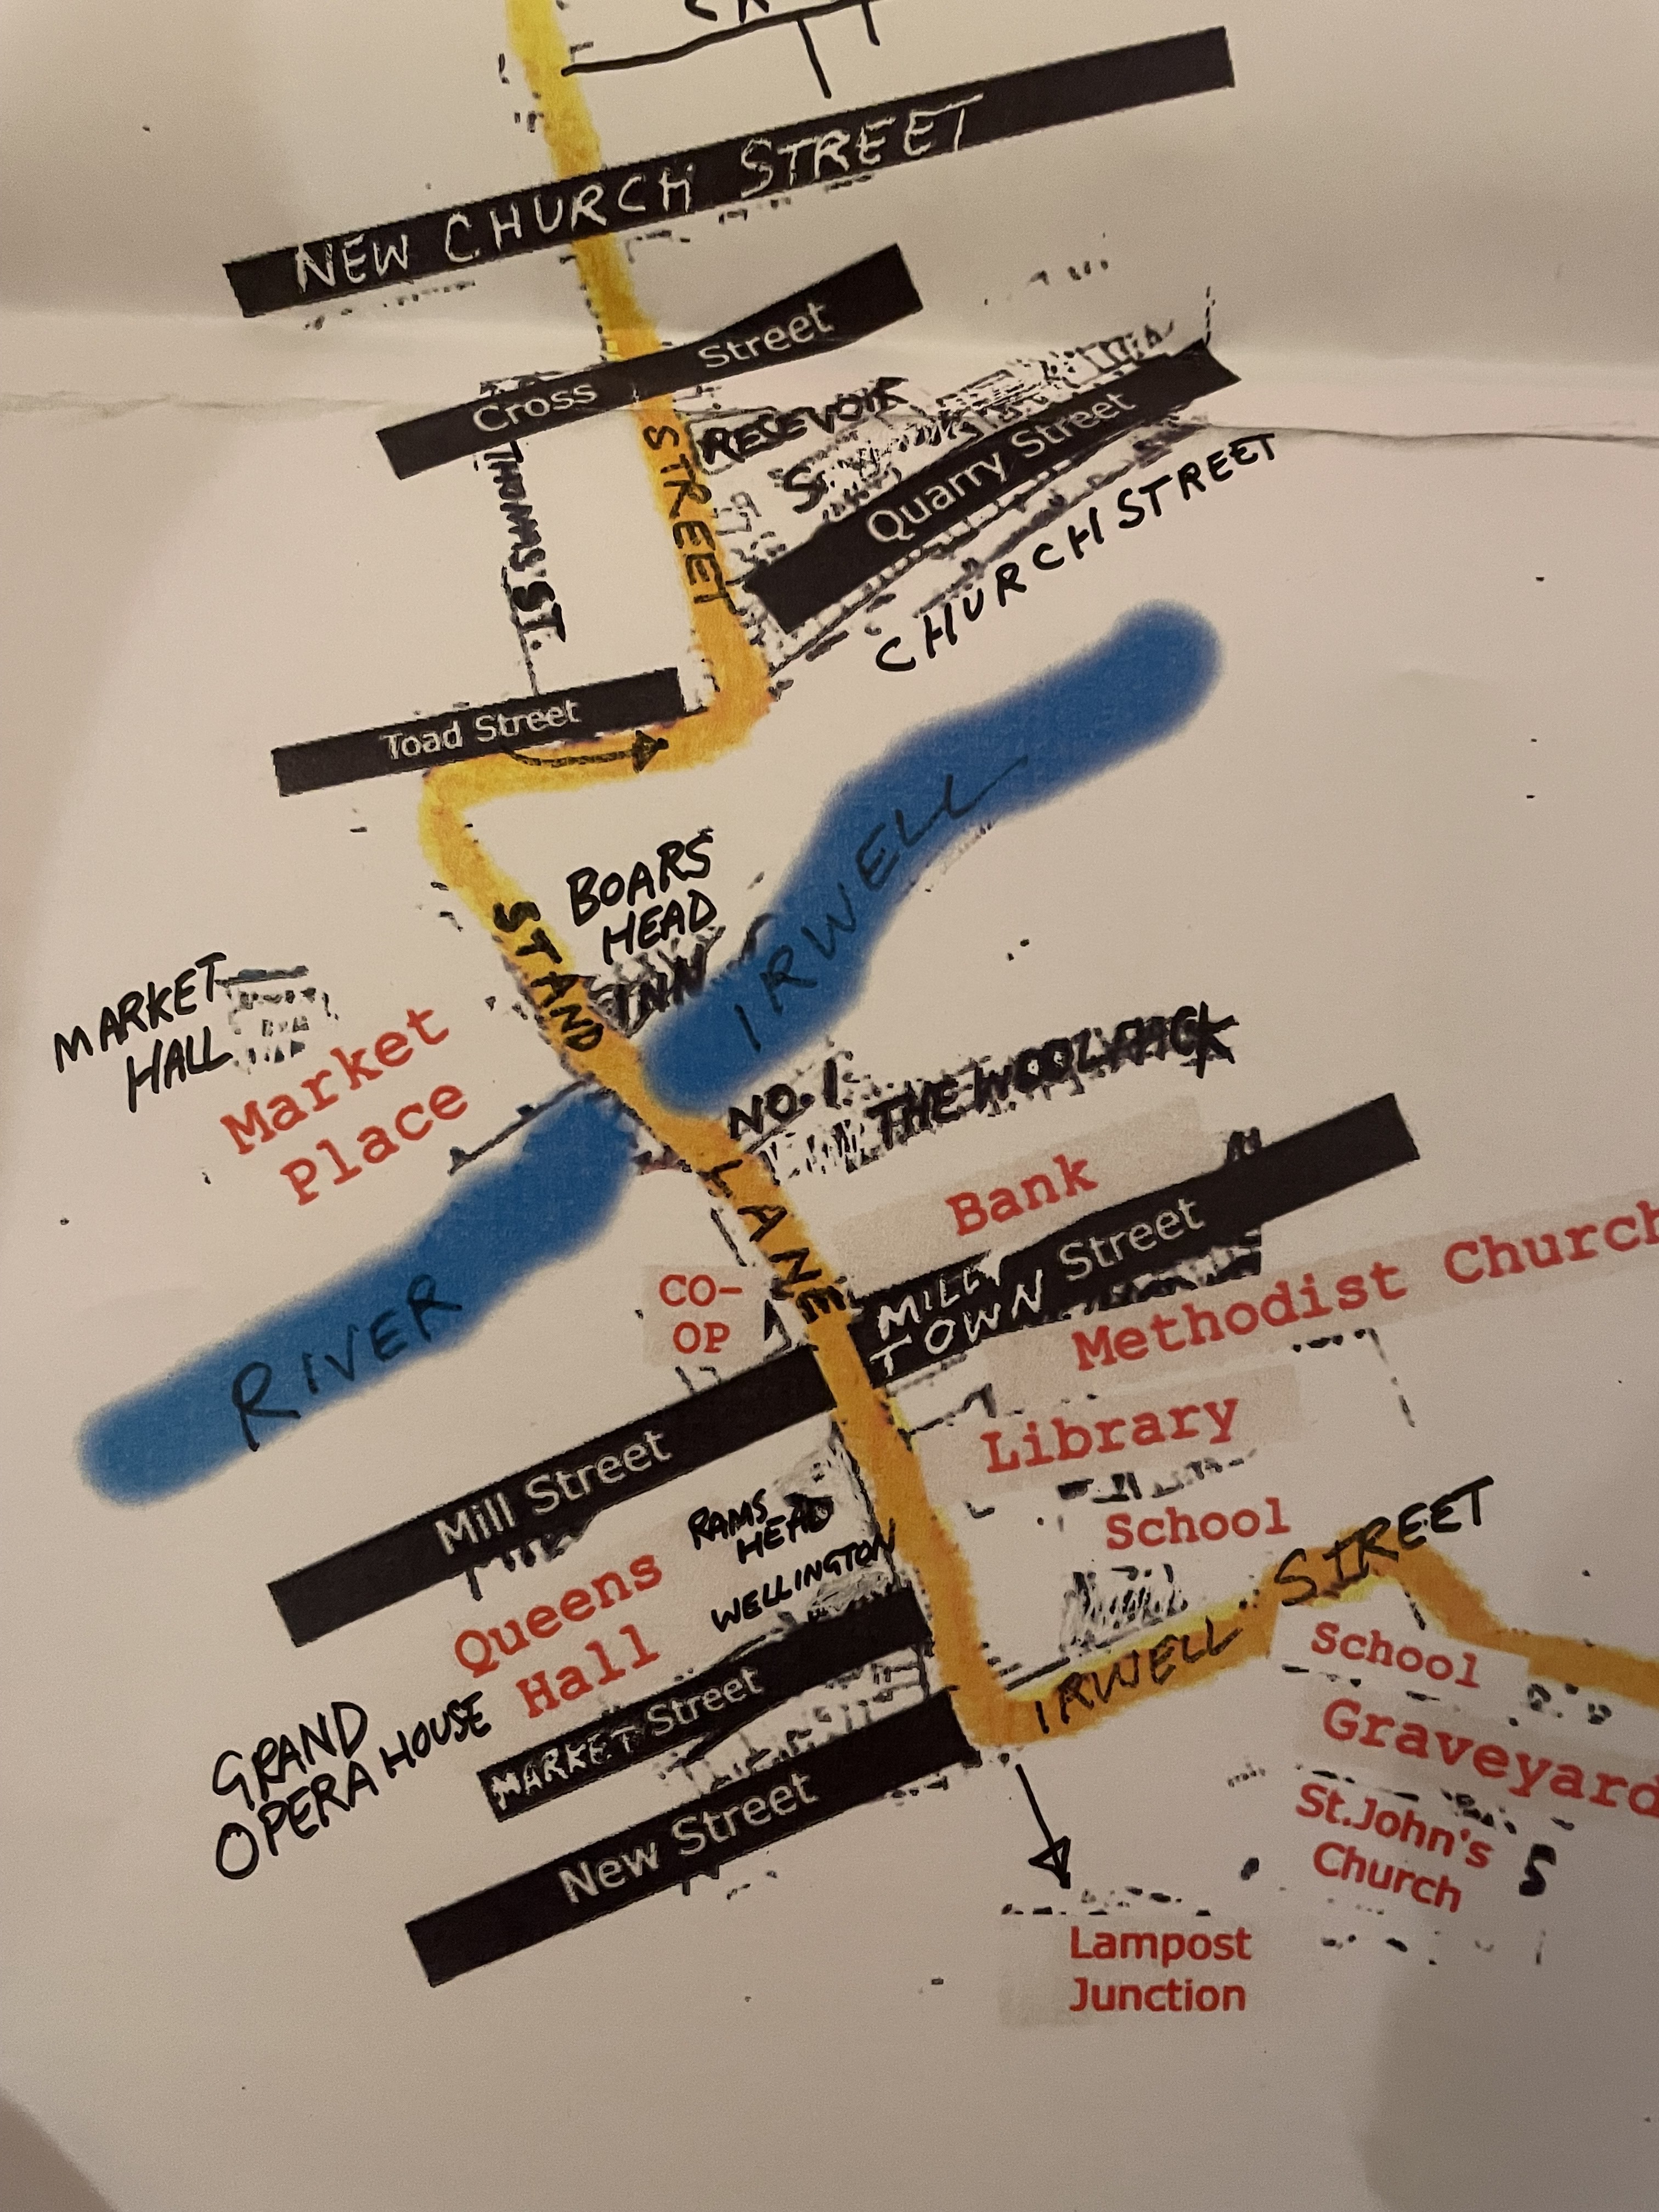 NEW CHURCH STREET
Cross Street
STREET
RESEVOIR
S
THOMAS ST.
Quarry Street
CHURCH STREET
Toad Street
BOARS
HEAD
INN
STAND LANE
RIVER IRWELL
MARKET
HALL
Market
Place
NO.1
THE WOOLPACK
Bank
CO-
OP
MILL
TOWN Street
Methodist Church
Mill Street
Library
RAMS
HEAD
WELLINGTON
School
Queens
Hall
GRAND
OPERA HOUSE
MARKET Street
IRWELL STREET
School
New Street
Graveyard
St.John's
Church
S
Lampost
Junction